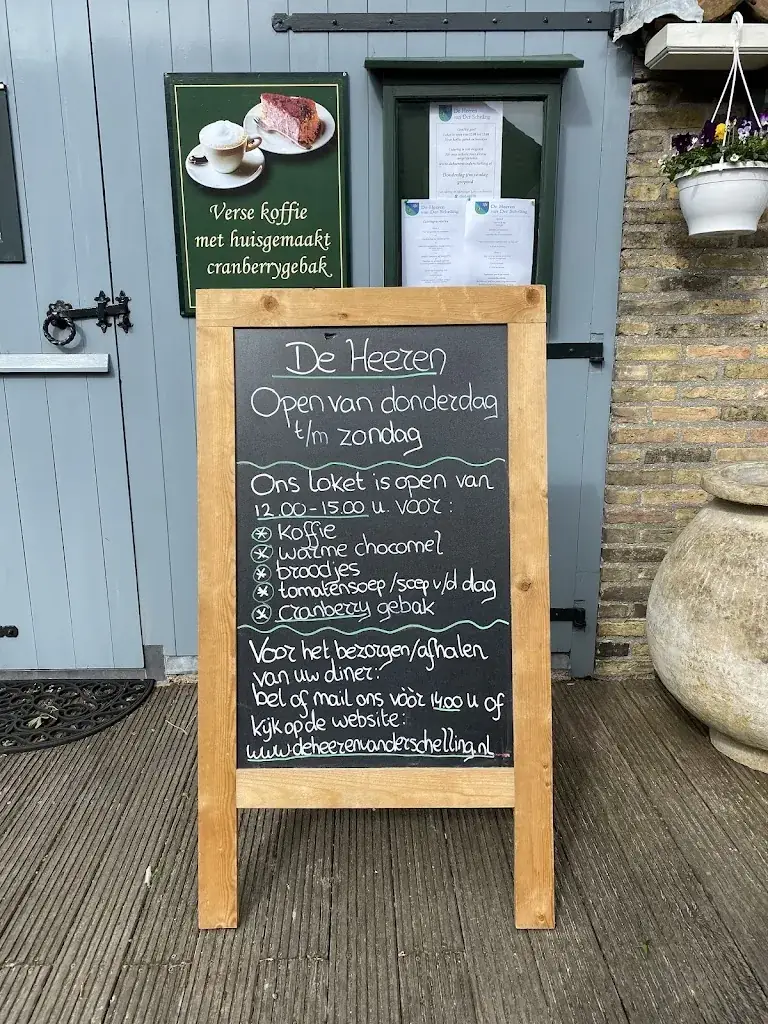 Verse koffie
met huisgemaakt
cranberrygebak
De Heeren
van Der Schelling
De Heeren
van Der Schelling
De Heeren
van Der Schelling
De Heeren
Open van donderdag
t/m zondag
Ons loket is open van
12.00-15.00 u. voor:
koffie
warme chocomel
broodjes
tomatensoep/soep v/d dag
cranberry gebak
Voor het bezorgen/afhalen
van uw diner:
bel of mail ons vòòr 14.00 u of
kijk op de website:
www.deheerenvanderschelling.nl